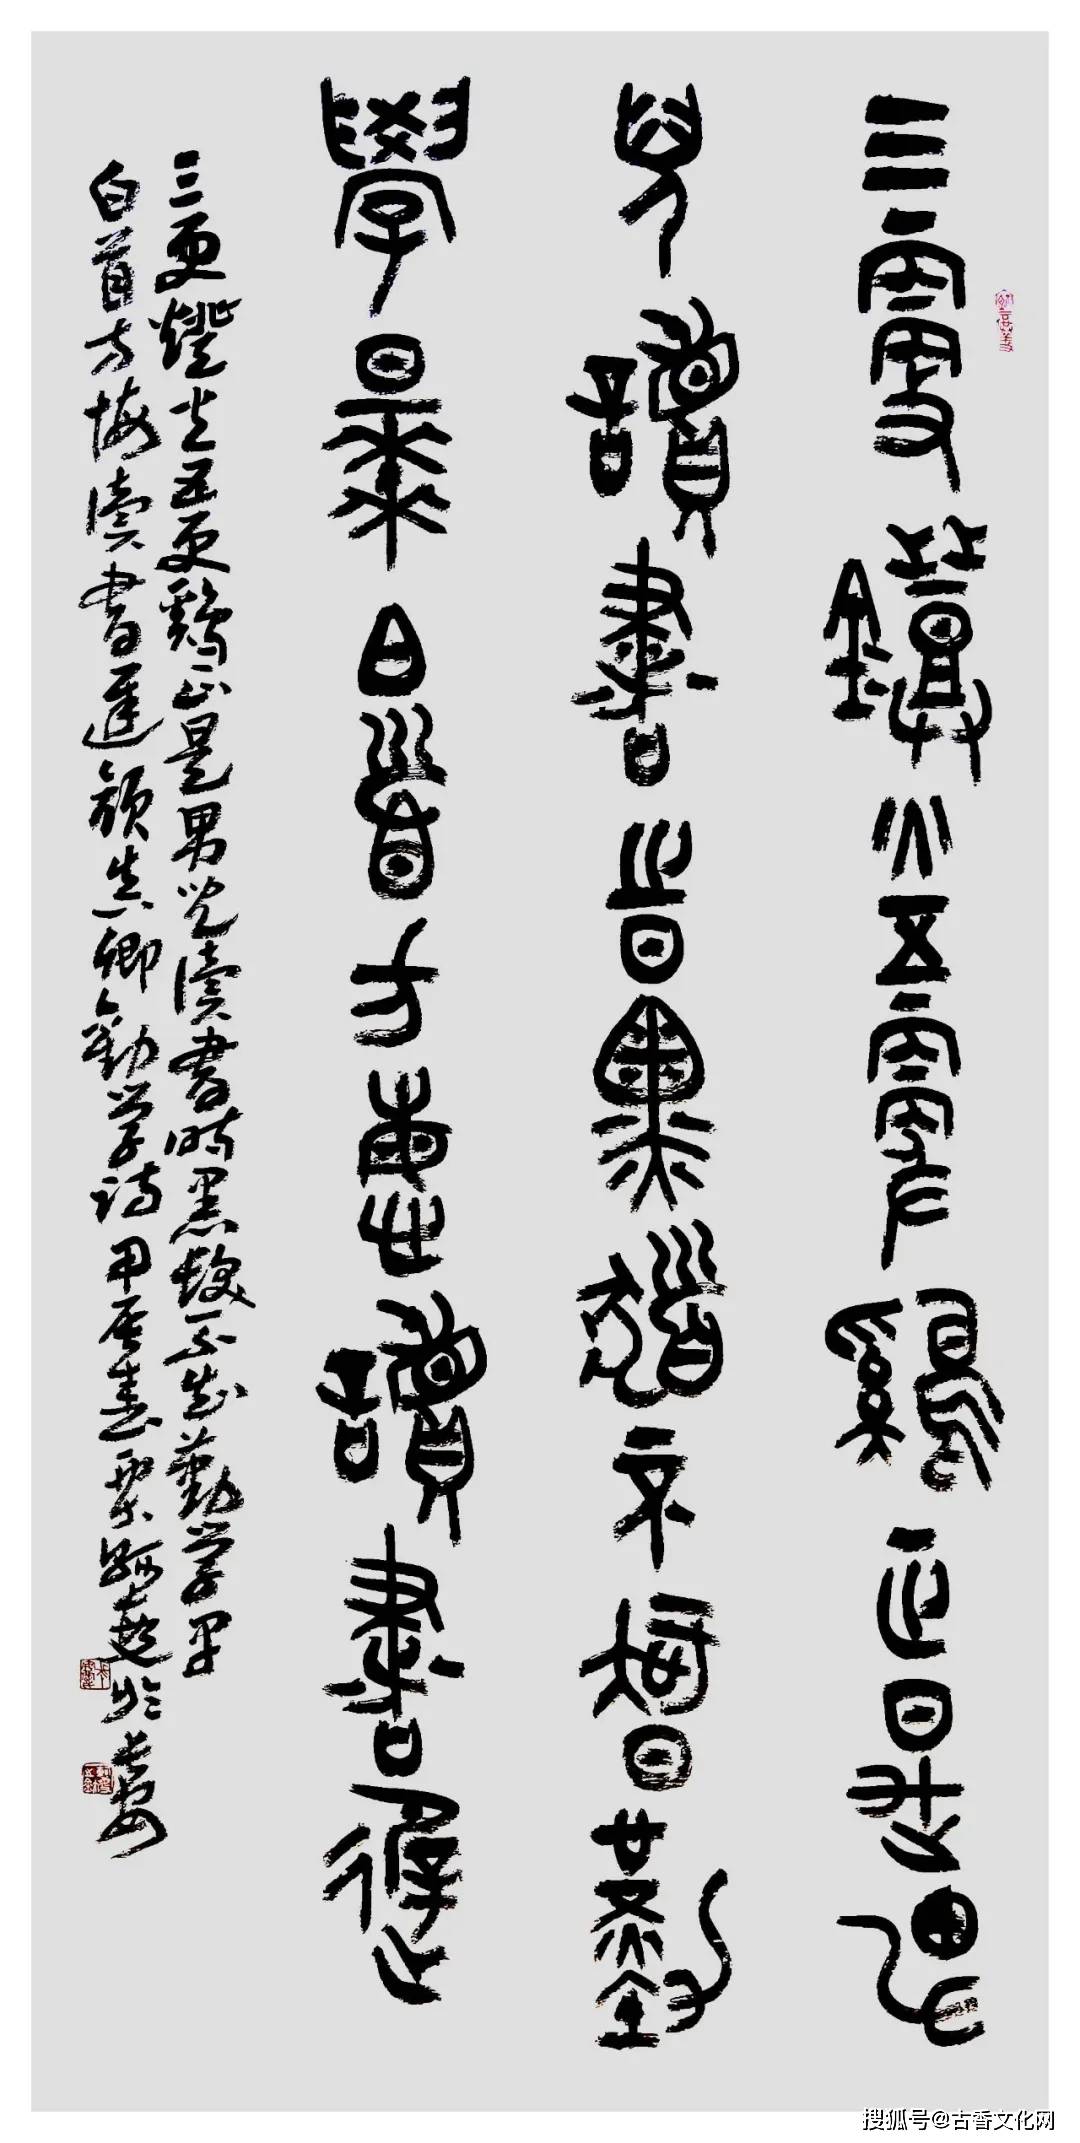 三更鐙火五更鷄正是男
兒讀書時黑髮不智勤
學早白首方悔讀書遲
三更燈火五更鷄正是男兒讀書時黑髮不知勤学早
白首方悔讀書遲顏真卿勸学詩 甲辰春於長安
搜狐号@古香文化网